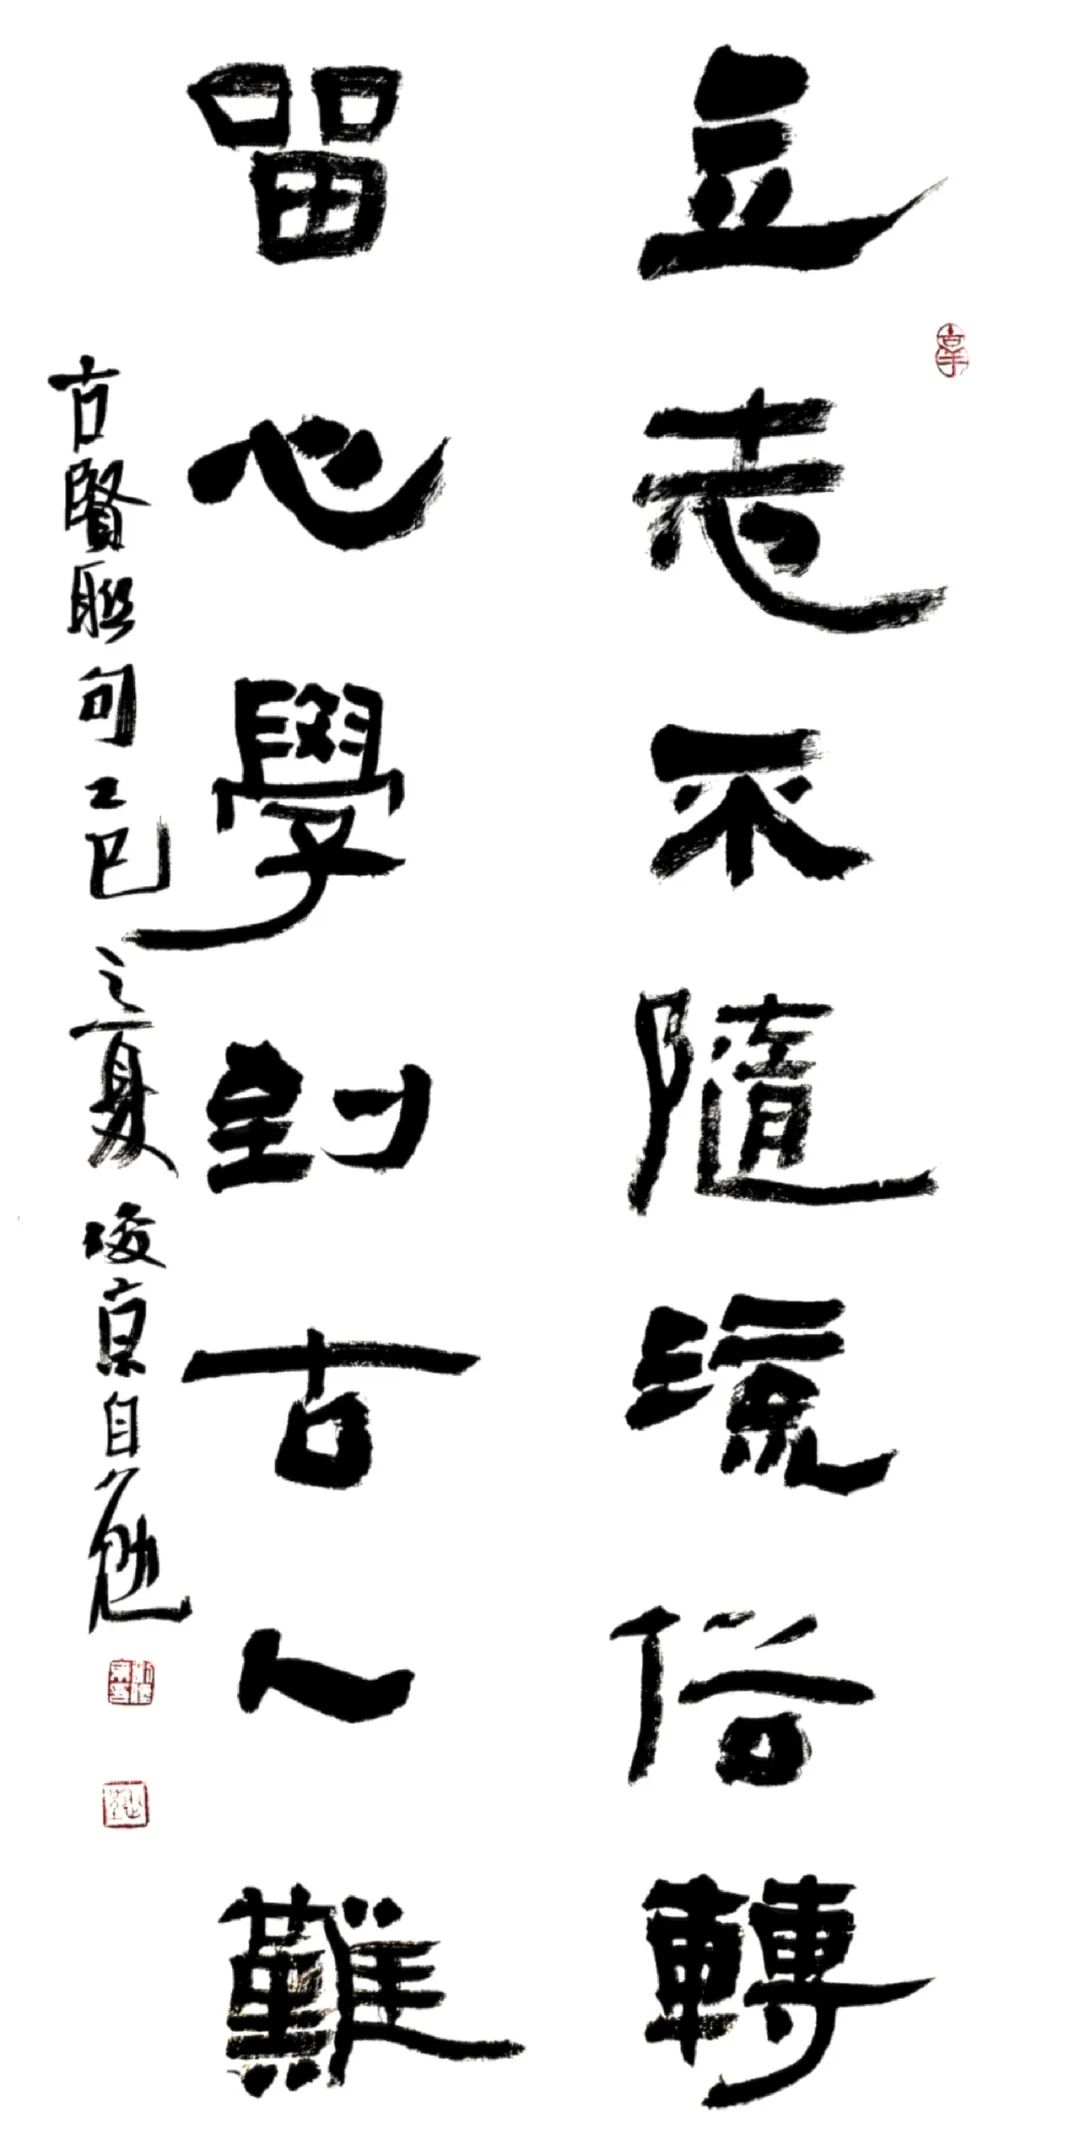 立志不隨流俗轉
留心學到古人難
古賢聯句乙巳之夏陵京自勉